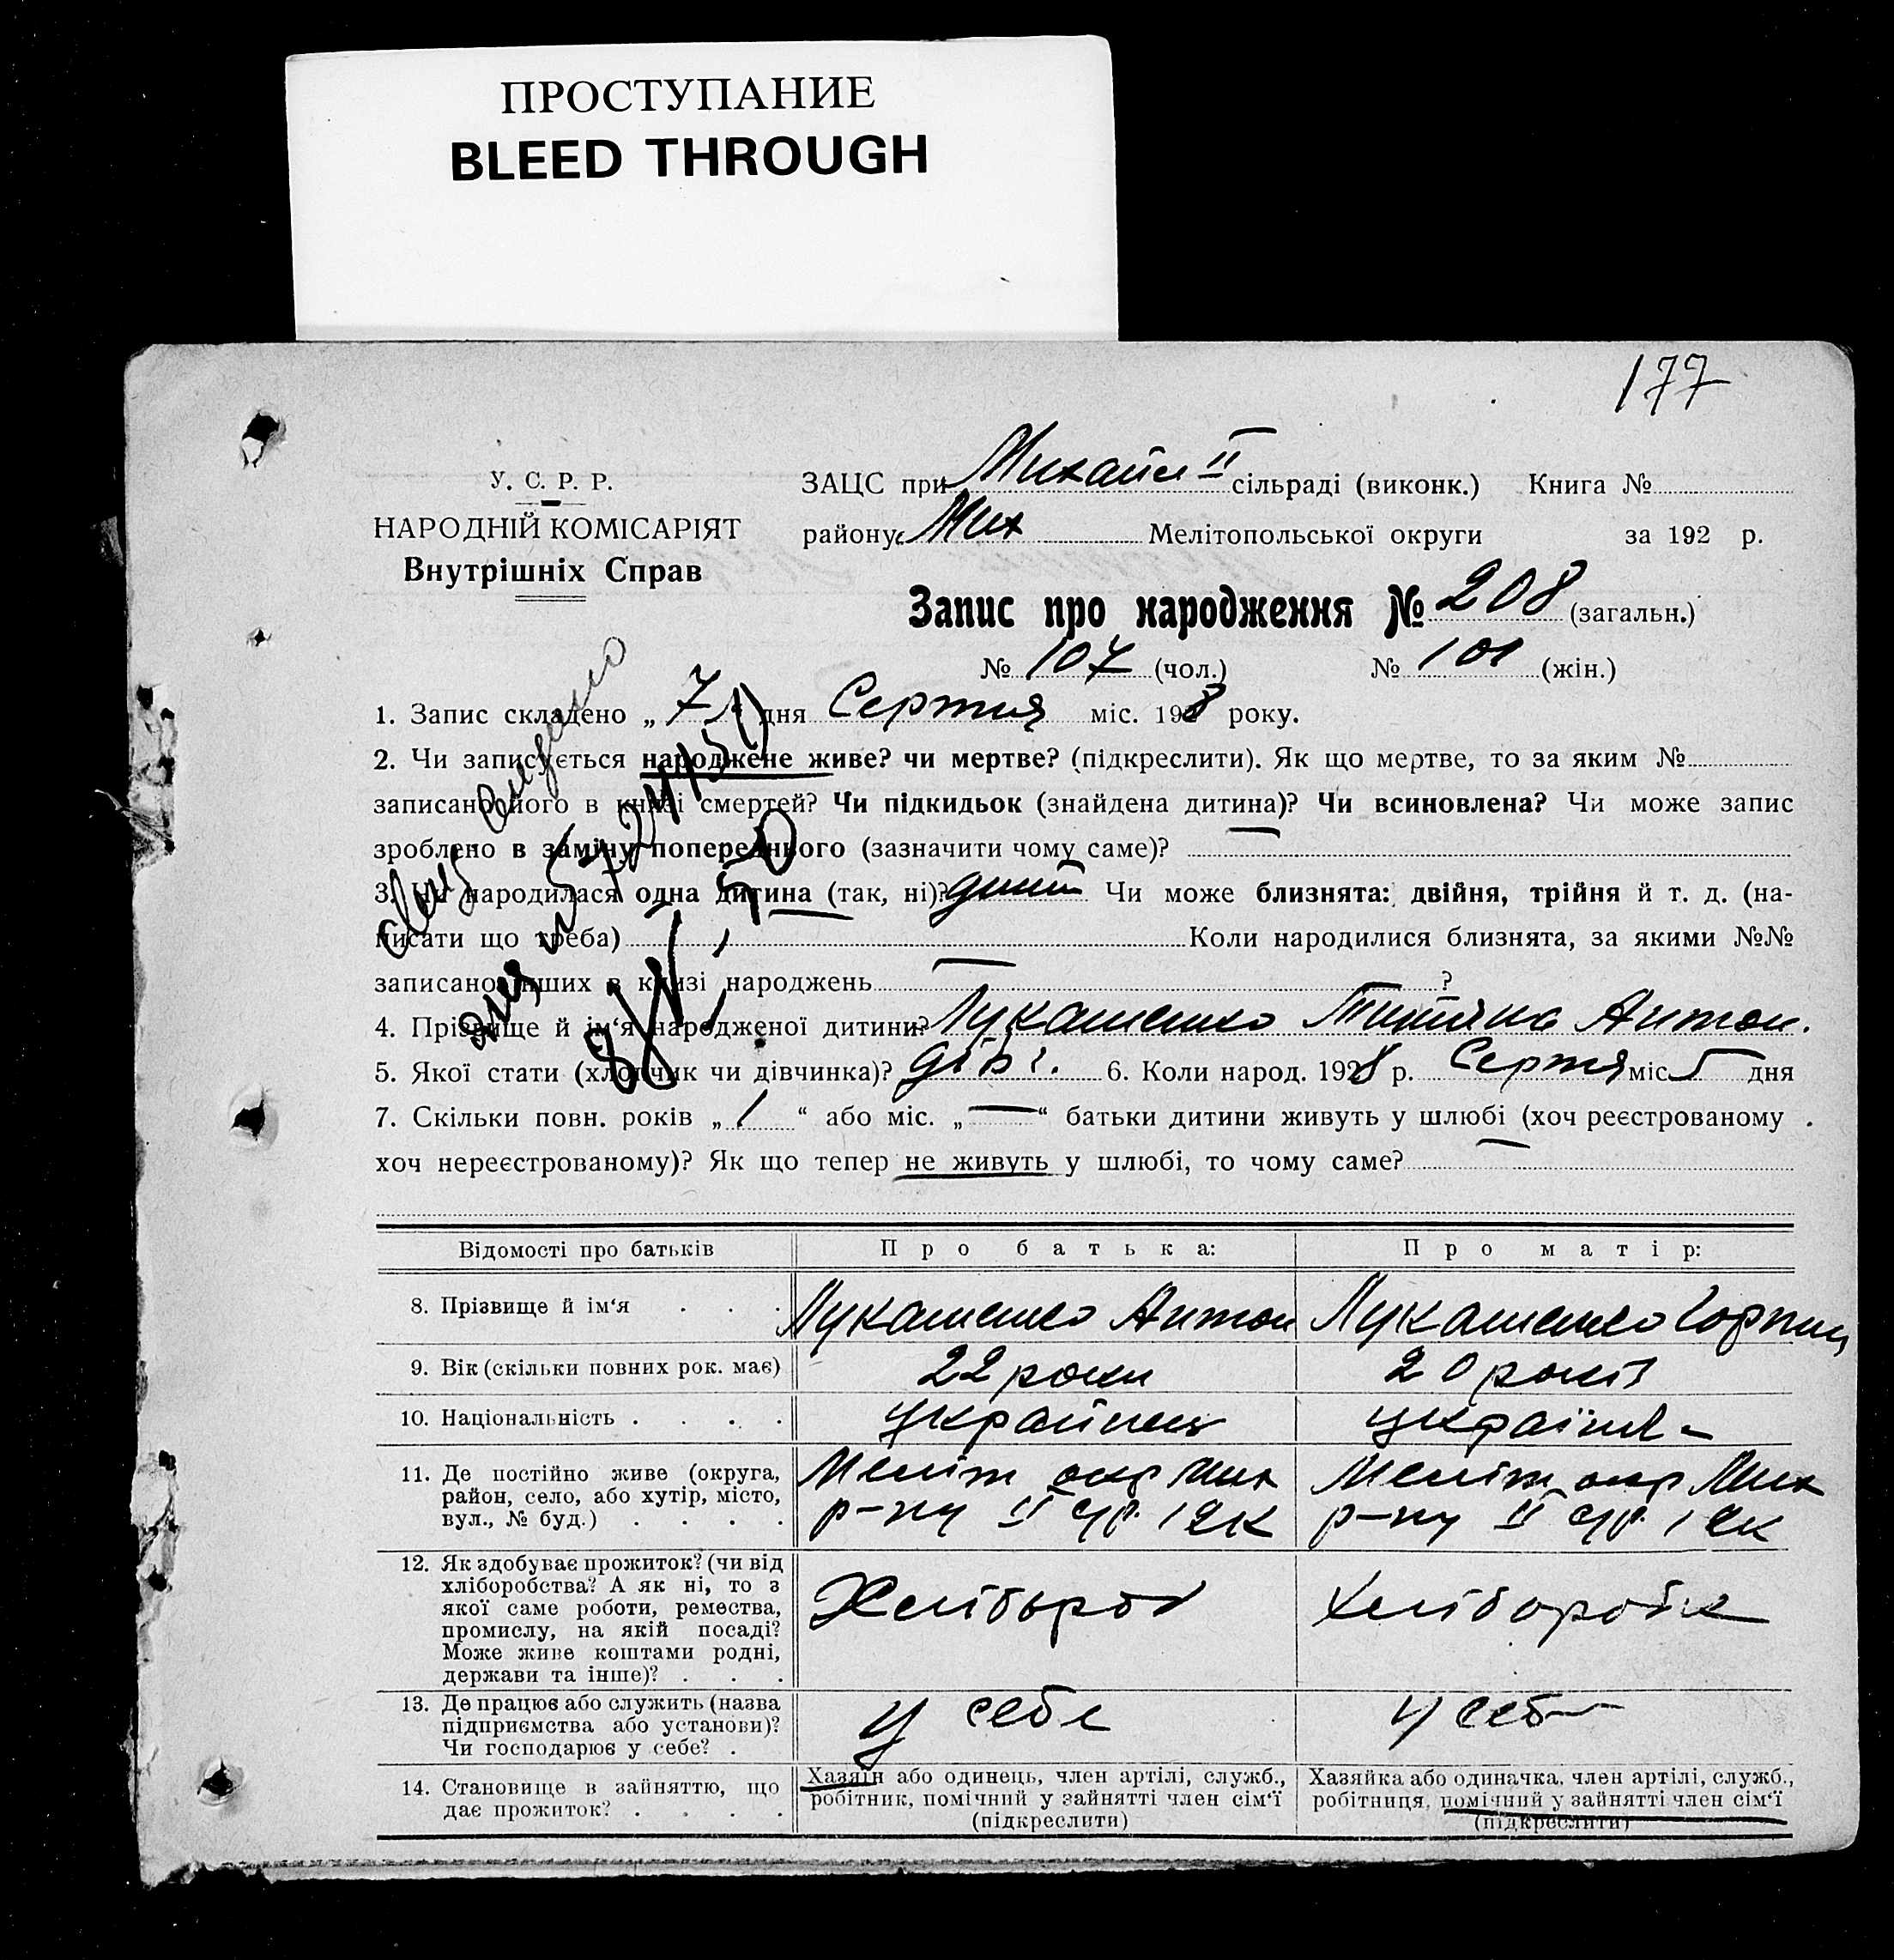 ПРОСТУПАНИЕ
BLEED THROUGH
177
У. С. Р. Р.
НАРОДНІЙ КОМІСАРІЯТ
Внутрішніх Справ
ЗАЦС при Михайл II сільраді (виконк.) Книга №
району Мих Мелітопольської округи за 192 р.
Запис про народження № 208 (загальн.)
№ 107 (чол.) № 101 (жін.)
1. Запис складено „ 7 “ дня Серпня міс. 1928 року.
2. Чи записується народжене живе? чи мертве? (підкреслити). Як що мертве, то за яким №
записано його в книзі смертей? Чи підкидьок (знайдена дитина)? Чи всиновлена? Чи може запис
зроблено в заміну попереднього (зазначити чому саме)? —
3. Чи народилася одна дитина (так, ні)? Чи може близнята: двійня, трійня й т. д. (на-
писати що треба) Коли народилися близнята, за якими №№
записано інших в книзі народжень — ?
4. Прізвище й ім‘я народженої дитини? Лукашенко Антон.
5. Якої стати (хлопчик чи дівчинка)? дівч. 6. Коли народ. 1928 р. Серпня міс 5 дня
7. Скільки повн. років „ 1 “ або міс. „ — “ батьки дитини живуть у шлюбі (хоч реєстрованому
хоч нереєстрованому)? Як що тепер не живуть у шлюбі, то чому саме? —
Відомості про батьків
Про батька:
Про матір:
8. Прізвище й ім‘я . . .
Лукашенко Антон
Лукашенко Горпина
9. Вік (скільки повних рок. має)
22 роки
20 років
10. Національність . . . .
українець
україн
11. Де постійно живе (округа,
район, село, або хутір, місто,
вул., № буд.) . . . .
Меліт окр Мих
р-ну II
Меліт окр Мих
р-ну II
12. Як здобуває прожиток? (чи від
хліборобства? А як ні, то з
якої саме роботи, ремества,
промислу, на якій посаді?
Може живе коштами родні,
держави та інше)? . . .
Хлібороб
хліборобка
13. Де працює або служить (назва
підприємства або установи)?
Чи господарює у себе? .
у себе
у себе
14. Становище в зайняттю, що
дає прожиток? . . . .
Хазяїн або одинець, член артілі, служб.,
робітник, помічний у зайнятті член сім‘ї
(підкреслити)
Хазяйка або одиначка, член артілі, служб.,
робітниця, помічний у зайнятті член сім‘ї
(підкреслити)